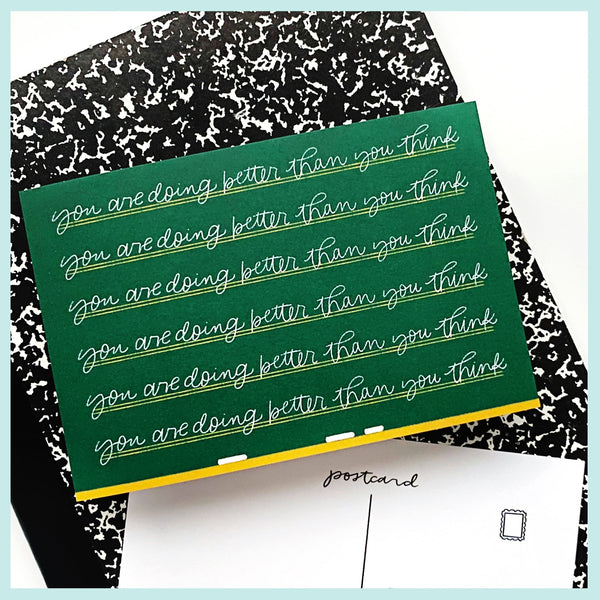 you are doing better than you think
you are doing better than you think
you are doing better than you think
you are doing better than you think
you are doing better than you think
you are doing better than you think
postcard